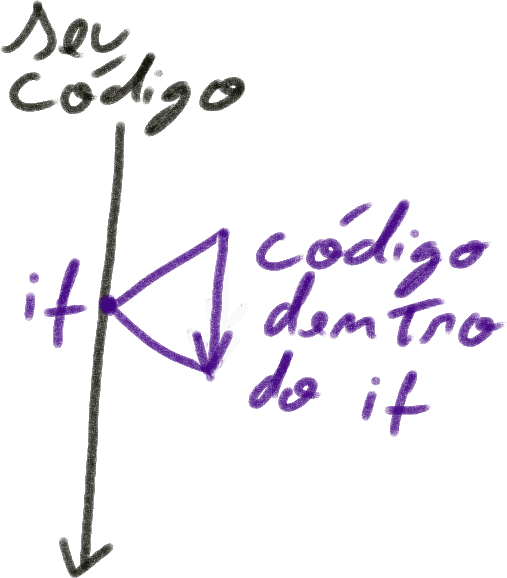 seu
código
if
código
dentro
do if